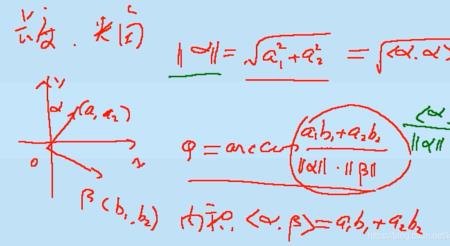 ‖α‖ = √(a₁²+a₂²) = √<α.α>
α (a₁ a₂)
y
x
0
β (b₁, b₂)
φ = arccos (a₁b₁+a₂b₂)/(‖α‖·‖β‖)
<α.
‖α‖
内积 <α.β> = a₁b₁+a₂b₂